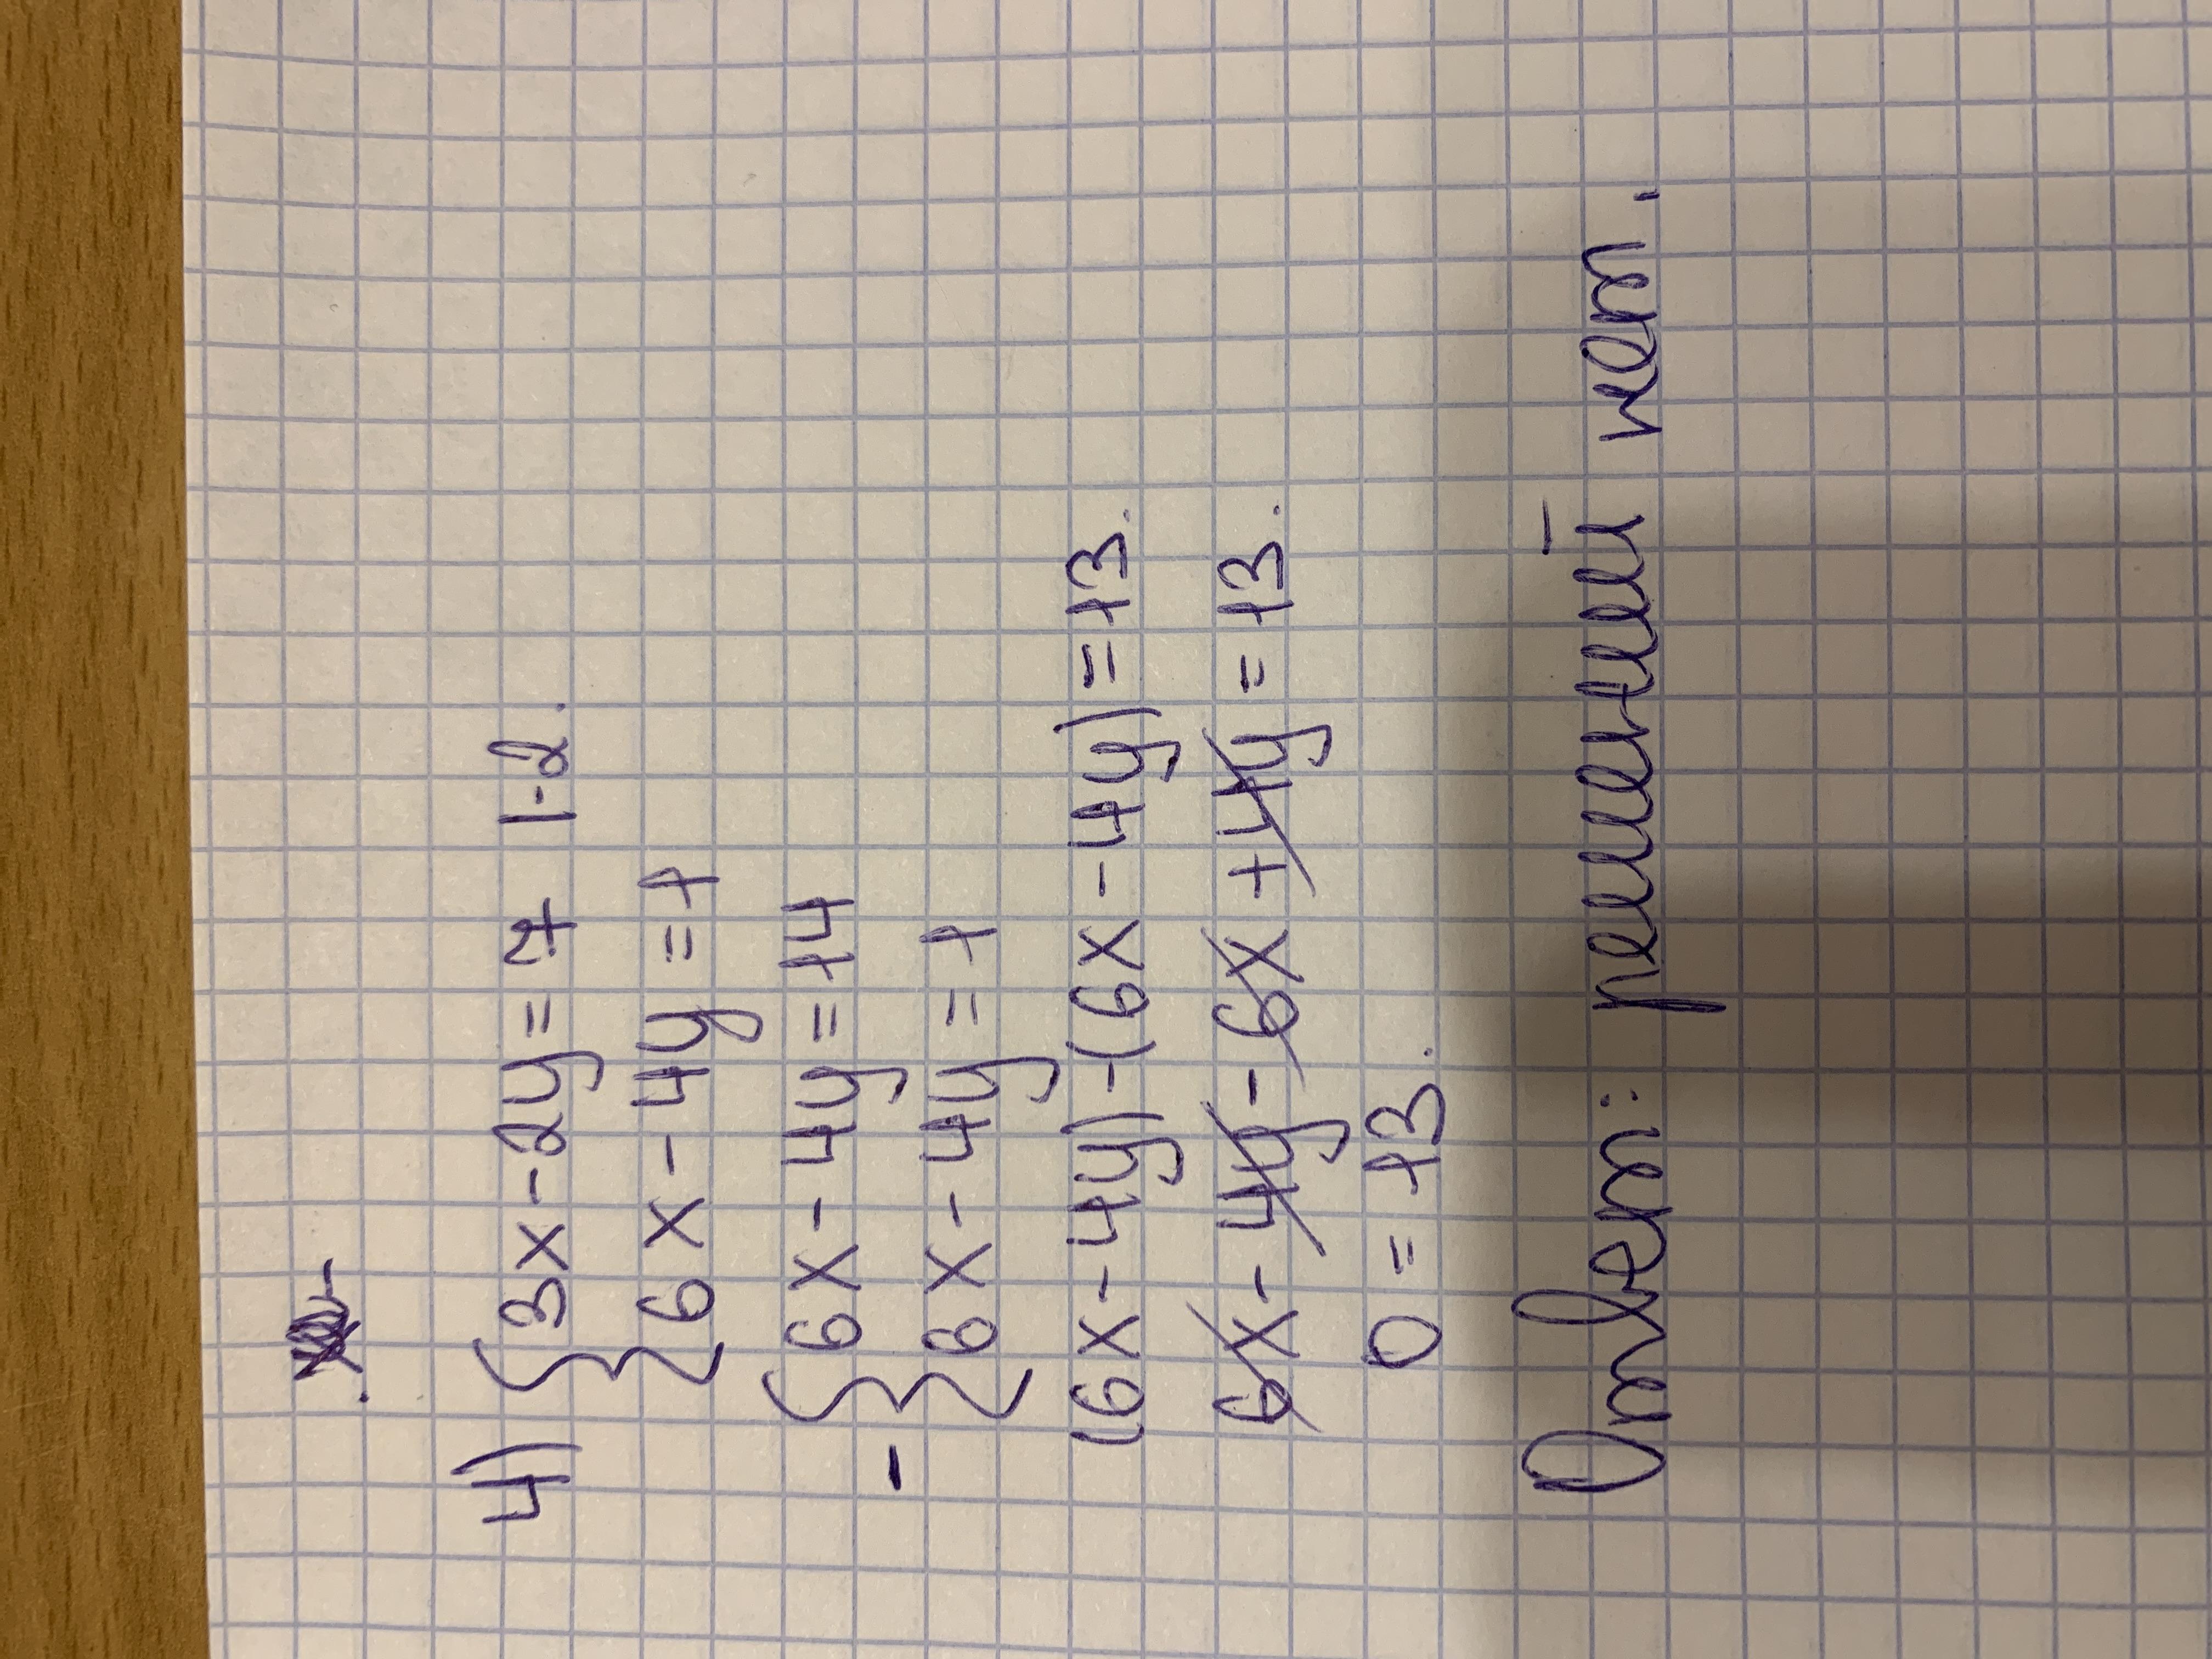 4) { 3x - 2y = 7 |·2.
{ 6x - 4y = 1
- { 6x - 4y = 14
{ 6x - 4y = 1
(6x - 4y) - (6x - 4y) = 13.
6x - 4y - 6x + 4y = 13.
0 = 13.
Ответ: решений нет.